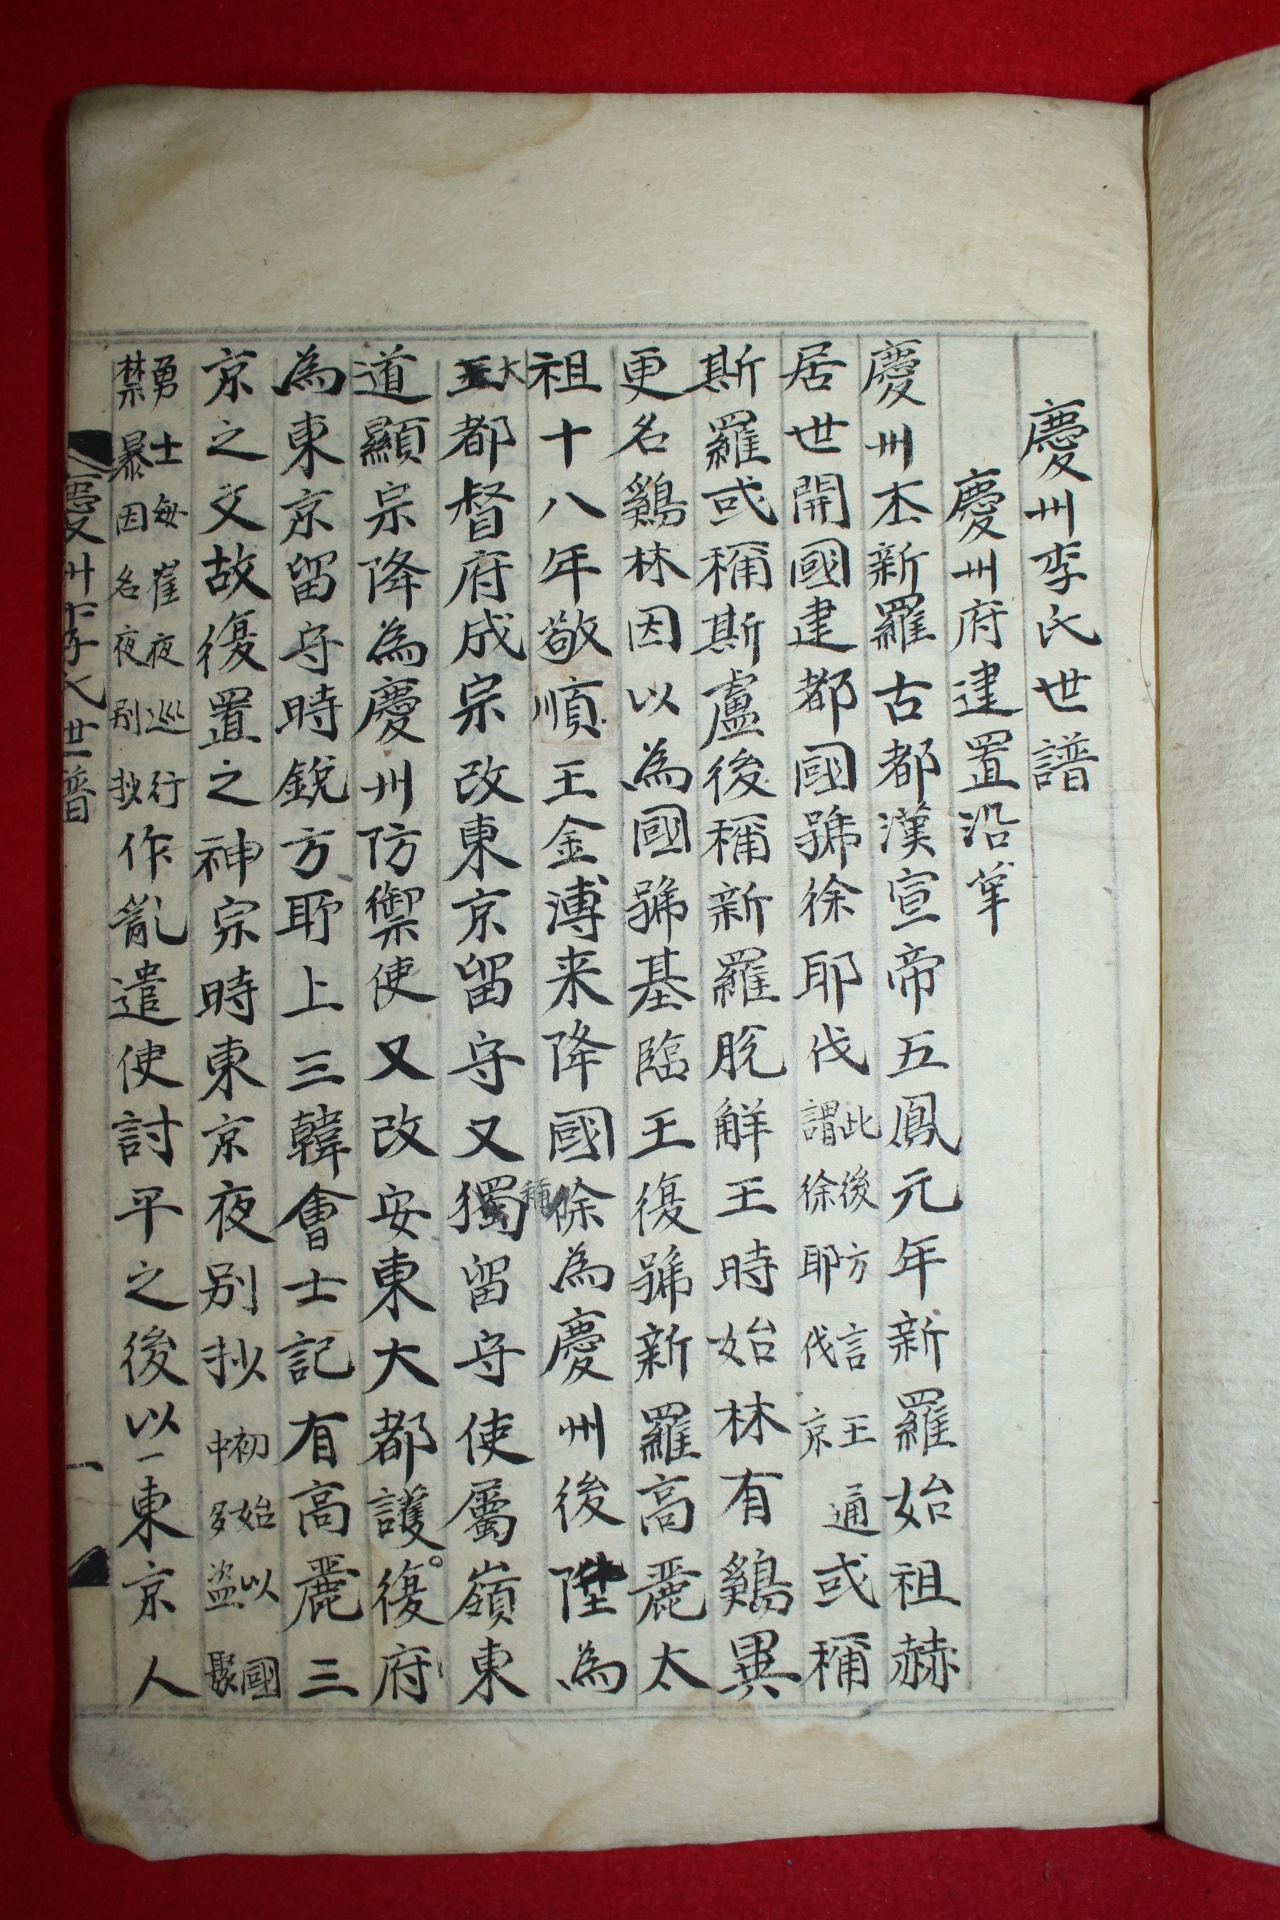 慶州李氏世譜
慶州府建置沿革
慶州本新羅古都漢宣帝五鳳元年新羅始祖赫
居世開國建都國號徐耶伐此後方言王通謂徐耶伐京或稱
斯羅或稱斯盧後稱新羅脫解王時始林有鷄異
更名鷄林因以為國號基臨王復號新羅高麗太
祖十八年敬順王金溥来降國除為慶州後陞為
大都督府成宗改東京留守又稱留守使屬嶺東
道顯宗降為慶州防禦使又改安東大都護復府
為東京留守時銳方耶上三韓會士記有高麗三
京之文故復置之神宗時東京夜別抄初始以國中多盗聚
勇士每崔夜巡行禁暴因名夜別抄作亂遣使討平之後以東京人
慶州李氏世譜 一